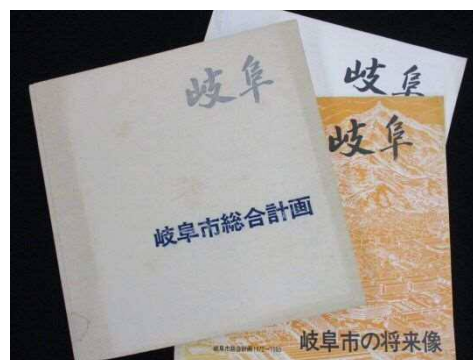 岐阜
岐阜市総合計画
岐阜
岐阜
岐阜市の将来像